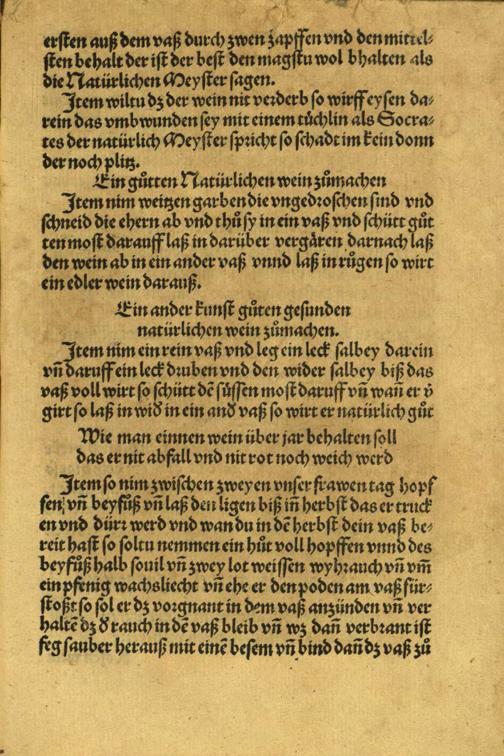 ersten auß dem vaß durch zwen zapffen vnd den mittel-
sten behalt der ist der best den magstu wol bhalten als
die Natürlichen Meyster sagen.
Item wiltu dz der wein nit verderb so wirff eysen da-
rein das vmbwunden sey mit einem tüchlin als Socra-
tes der natürlich Meyster spricht so schadt im kein donn
der noch plitz.
Ein gůtten Natürlichen wein zůmachen
Item nim weitzen garben die vngedroschen sind vnd
schneid die ehern ab vnd thů sy in ein vaß vnd schütt gůt
ten most darauff laß in darüber vergären darnach laß
den wein ab in ein ander vaß vnnd laß in růgen so wirt
ein edler wein darauß.
Ein ander kunst gůten gesunden
natürlichen wein zůmachen.
Item nim ein rein vaß vnd leg ein leck salbey darein
vñ daruff ein leck druben vnd den wider salbey biß das
vaß voll wirt so schütt dē süssen most daruff vñ wañ er v̄
girt so laß in wid̄ in ein and̄ vaß so wirt er natürlich gůt
Wie man einnen wein über jar behalten soll
das er nit abfall vnd nit rot noch weich werd
Item so nim zwischen zweyen vnser frawen tag hopf
fen vñ beyfůß vñ laß den ligen biß iñ herbst das er truck
en vnd dürr werd vnd wan du in dē herbst dein vaß be-
reit hast so soltu nemmen ein hůt voll hopffen vnnd des
beyfůß halb souil vñ zwey lot weissen wyhrauch vñ vm̄
ein pfenig wachsliecht vñ ehe er den poden am vaß für-
stoßt so sol er dz vorgnant in dem vaß anzünden vñ ver
haltē dz d̄ rauch in dē vaß bleib vñ wz dañ verbrant ist
feg sauber herauß mit einē besem vñ bind dañ dz vaß zů